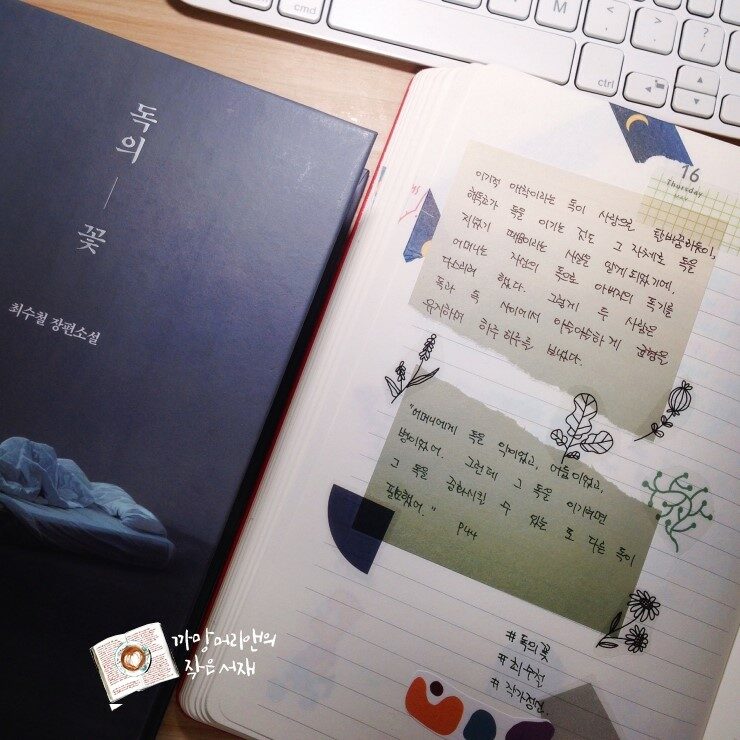 독의
꽃
최수철 장편소설
cmd
M
<
,
>
.
?
/
ctrl
16
Thursday
이기적 애착이라는 독이 사랑으로 탈바꿈하듯이,
해독초가 독을 이기는 것도 그 자체로 독을
지녔기 때문이라는 사실을 알게 되었기에,
어머니는 자신의 독으로 아버지의 독기를
다스리려 했다. 그렇게 두 사람은
독과 독 사이에서 아슬아슬하게 균형을
유지하며 하루 하루를 보냈다.
"어머니에게 독은 악이었고, 어둠이었고,
병이었어. 그런데 그 독을 이기려면
그 독을 중화시킬 수 있는 또 다른 독이
필요했어."
P44
#독의 꽃
#최수철
#작가정신.
까망머리앤의
작은서재